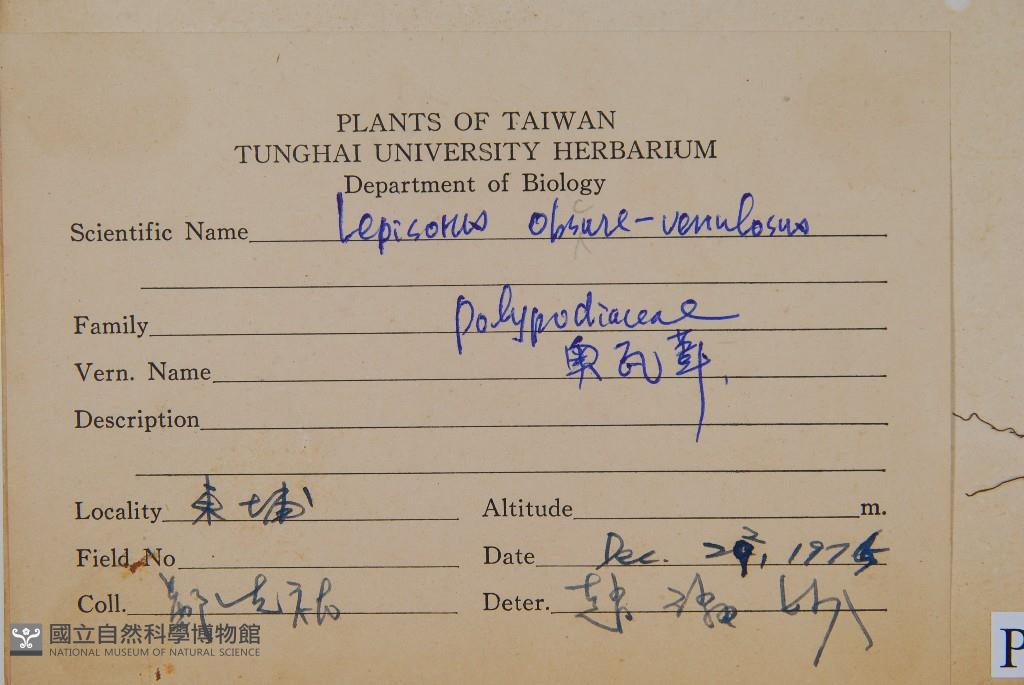 PLANTS OF TAIWAN
TUNGHAI UNIVERSITY HERBARIUM
Department of Biology
Scientific Name Lepisorus obscure-venulosus
Family Polypodiaceae
Vern. Name 奧瓦葦
Description
Locality 東埔
Altitude m.
Field No
Date Dec. 1975
Coll.
Deter.
國立自然科學博物館
NATIONAL MUSEUM OF NATURAL SCIENCE
P